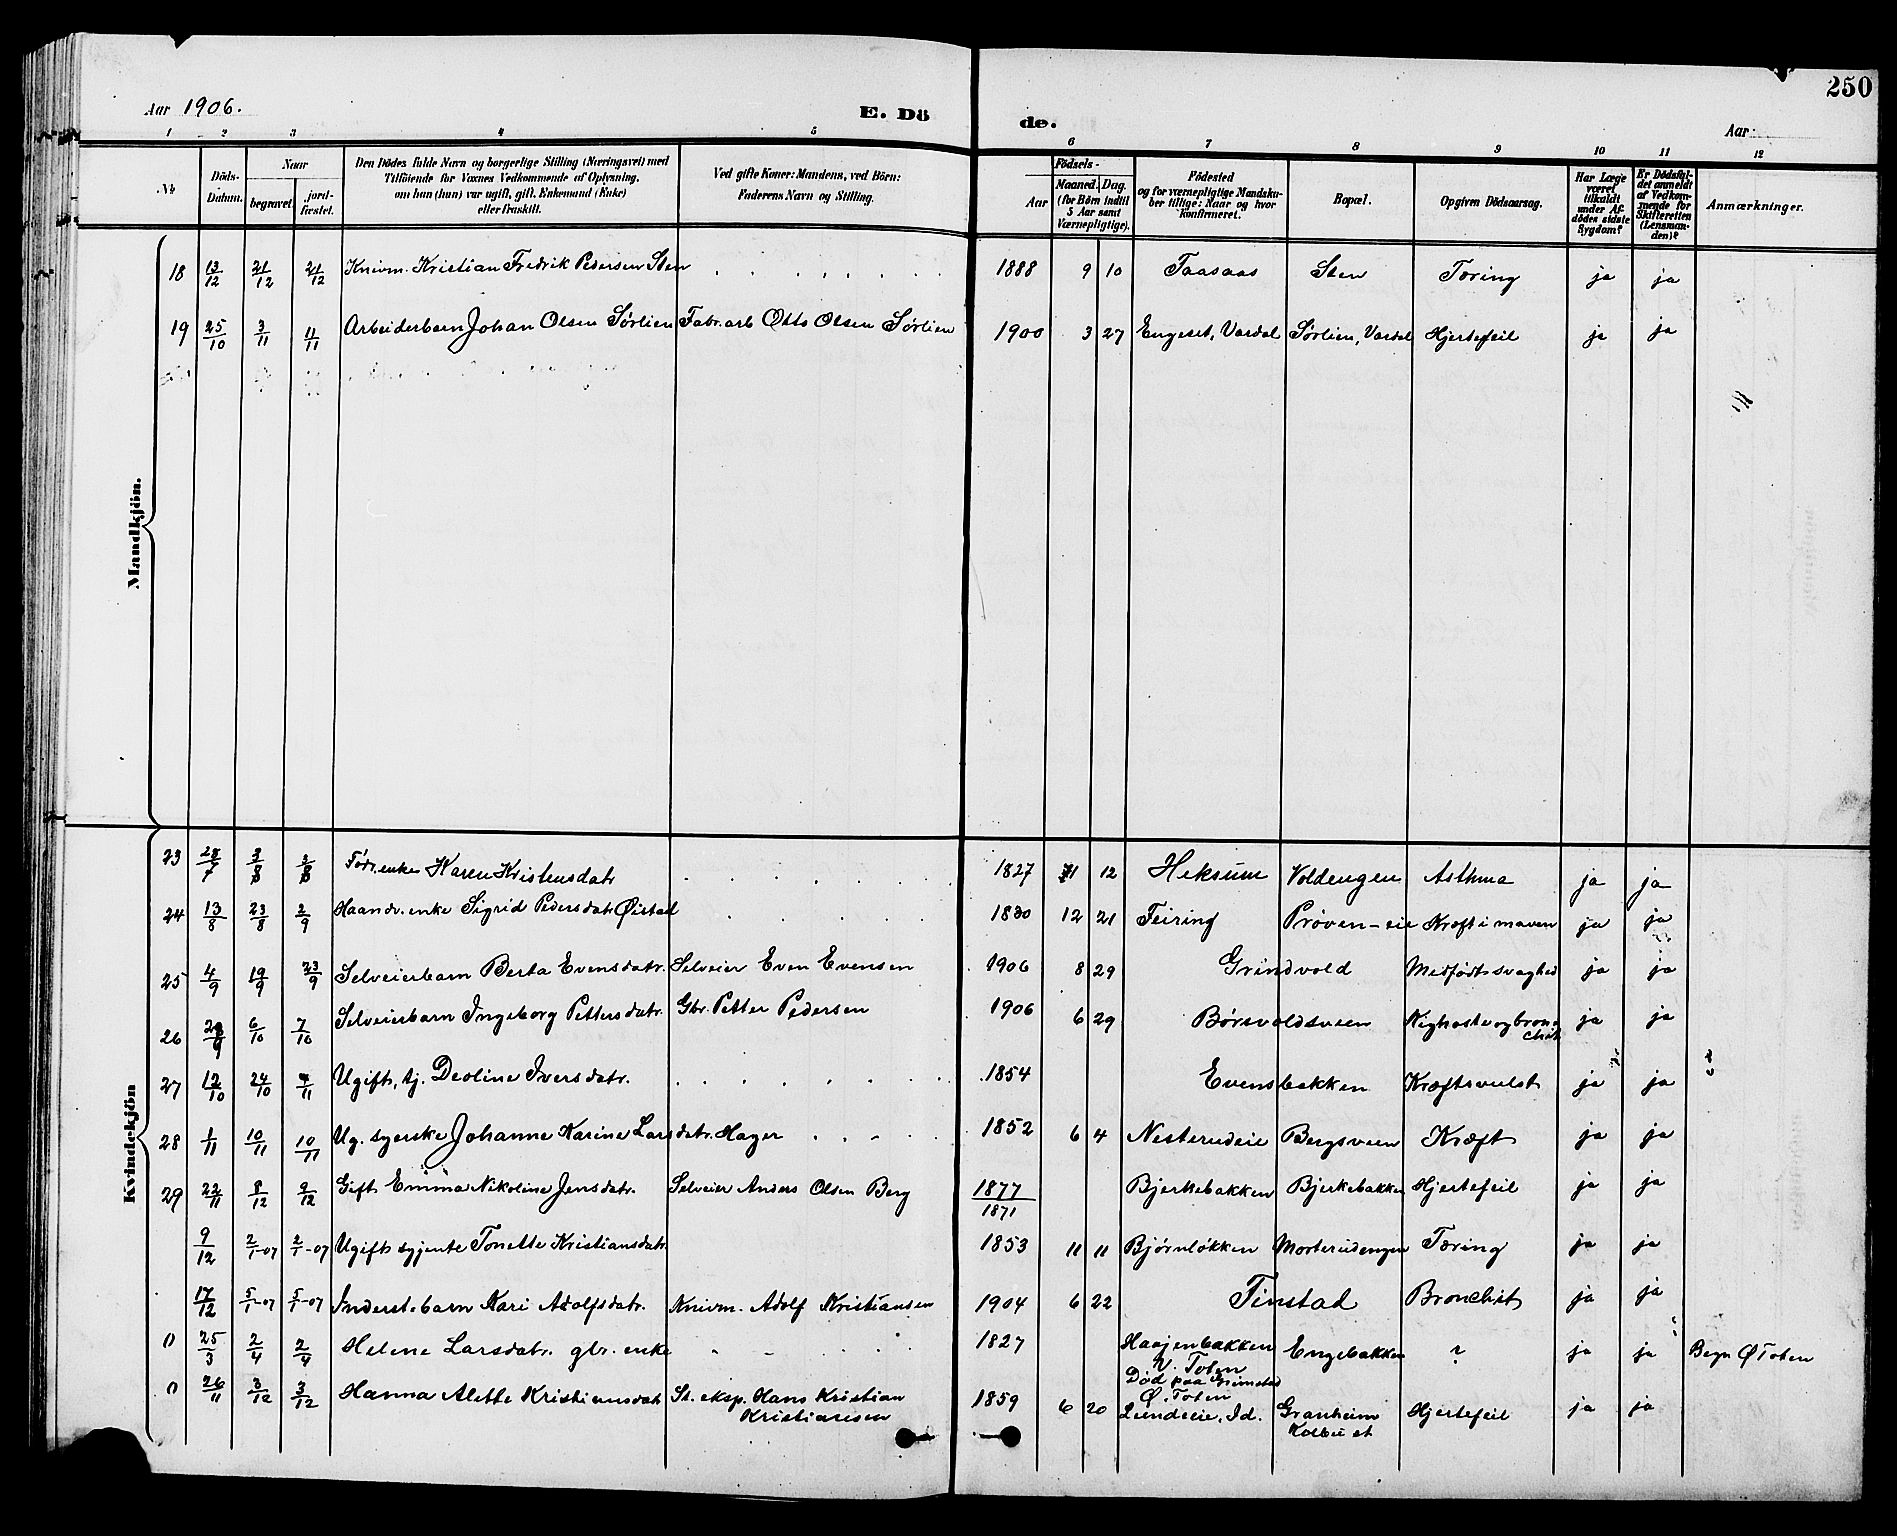 250
Aar 1906. E. Dö de. Aar
1 2 3 4 5 6 7 8 9 10 11 12
№ Döds-Datum. Naar begravet. jord-fæstet. Den Dödes fulde Navn og borgerlige Stilling (Næringsvei) med Tilföiende for Voxnes Vedkommende af Oplysning. om han (hun) var ugift, gift, Enkemand (Enke) eller fraskilt. Ved gifte Koner: Mandens, ved Börn: Faderens Navn og Stilling. Födsels- Aar Maaned. Dag. (for Börn indtil 5 Aar samt Værnepligtige). Födested og for værnepligtige Mandskaber tillige: Naar og hvor konfirmeret. Bopæl. Opgiven Dödsaarsag. Har Læge været tilkaldt under Afdödes sidste Sygdom? Er Dödsfaldet anmeldt af Vedkommende for Skifteretten (Lensmanden)? Anmærkninger.
Mandkjön.
18 13/12 21/12 21/12 Knivm. Kristian Fredrik Pedersen Sten 1888 9 10 Taasaas Sten Tæring ja ja
19 25/10 3/11 11/11 Arbeiderbarn Johan Olsen Sørlien Fabr.arb Otto Olsen Sørlien 1900 3 27 Engeset, Vardal Sørlien, Vardal Hjertefeil ja ja
Kvindekjön
23 28/7 3/8 3/8 Födr.enke Karen Kristensdatr 1827 11 12 Heksum Voldengen Asthma ja ja
24 13/8 23/8 2/9 Haandv.enke Sigrid Pedersdatr Øistad 1830 12 21 Feiring Prøven-eie Kræft i maven ja ja
25 4/9 19/9 23/9 Selveierbarn Berta Evensdatr. Selveier Even Evensen 1906 8 29 Grindvold Medfødt svaghed ja ja
26 28/9 6/10 7/10 Selveierbarn Ingeborg Pettersdatr. Gbr. Petter Pedersen 1906 6 29 Børsvoldsveen Kighoste og bronchit ja ja
27 12/10 24/10 4/11 Ugift, tj. Deoline Iversdatr. 1854 Evensbakken Kræftsvulst ja ja
28 1/11 10/11 10/11 Ug. syerske Johanne Karine Larsdatr. Hager 1852 6 4 Nesterudeie Bergsveen Kræft ja ja
29 22/11 8/12 9/12 Gift Emma Nikoline Jensdatr. Selveier Anders Olsen Berg 1877 Bjerkebakken Bjerkebakken Hjertefeil ja ja
1871
9/12 2/1-07 2/1-07 Ugift syjente Tonette Kristiansdatr. 1853 11 11 Bjørnløkken Morterudengen Tæring ja ja
17/12 5/1-07 5/1-07 Inderst.barn Kari Adolfsdatr. Knivm. Adolf Kristiansen 1904 6 22 Finstad Bronchit ja ja
0 25/3 2/4 2/4 Helene Larsdatr. gbr. enke 1827 Haajenbakken Engebakken ? ja ja Begr. Ø Toten
V. Toten
Død paa Grimstad
Ø. Toten
0 26/11 3/12 3/12 Hanna Alette Kristiansdatr St. eksp. Hans Kristian 1859 6 20 Lundseie, Id. Granheim Hjertefeil ja ja
Kristiansen Kolbu st.